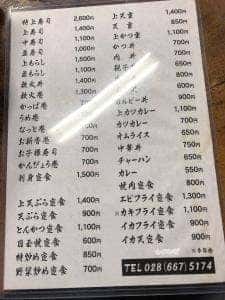 特上寿司 2,600円
上寿司
中寿司 1,100円
並寿司 700円
上ちらし 1,500円
並ちらし 1,100円
鉄火丼 1,300円
鉄火巻 1,300円
かっぱ巻 700円
うめ巻 700円
なっと巻 700円
お新香巻 700円
お子様寿司 700円
かんぴょう巻 700円
刺身定食 1,500円
上天ぷら定食 1,400円
天ぷら定食 900円
とんかつ定食 1,100円
日替健定食 600円
特炒め定食 850円
野菜炒め定食 700円
上天重 1,400円
天重 850円
上かつ重 1,100円
かつ丼
肉丼
親子丼
カルビー丼
上カツカレー 1,100円
カツカレー 900円
オムライス 700円
中華丼 700円
チャーハン 650円
カレー 550円
焼肉定食 800円
エビフライ定食 1,100円
カキフライ定食 1,100円
イカフライ定食 900円
イカ天定食 900円
TEL 028 (667) 5174